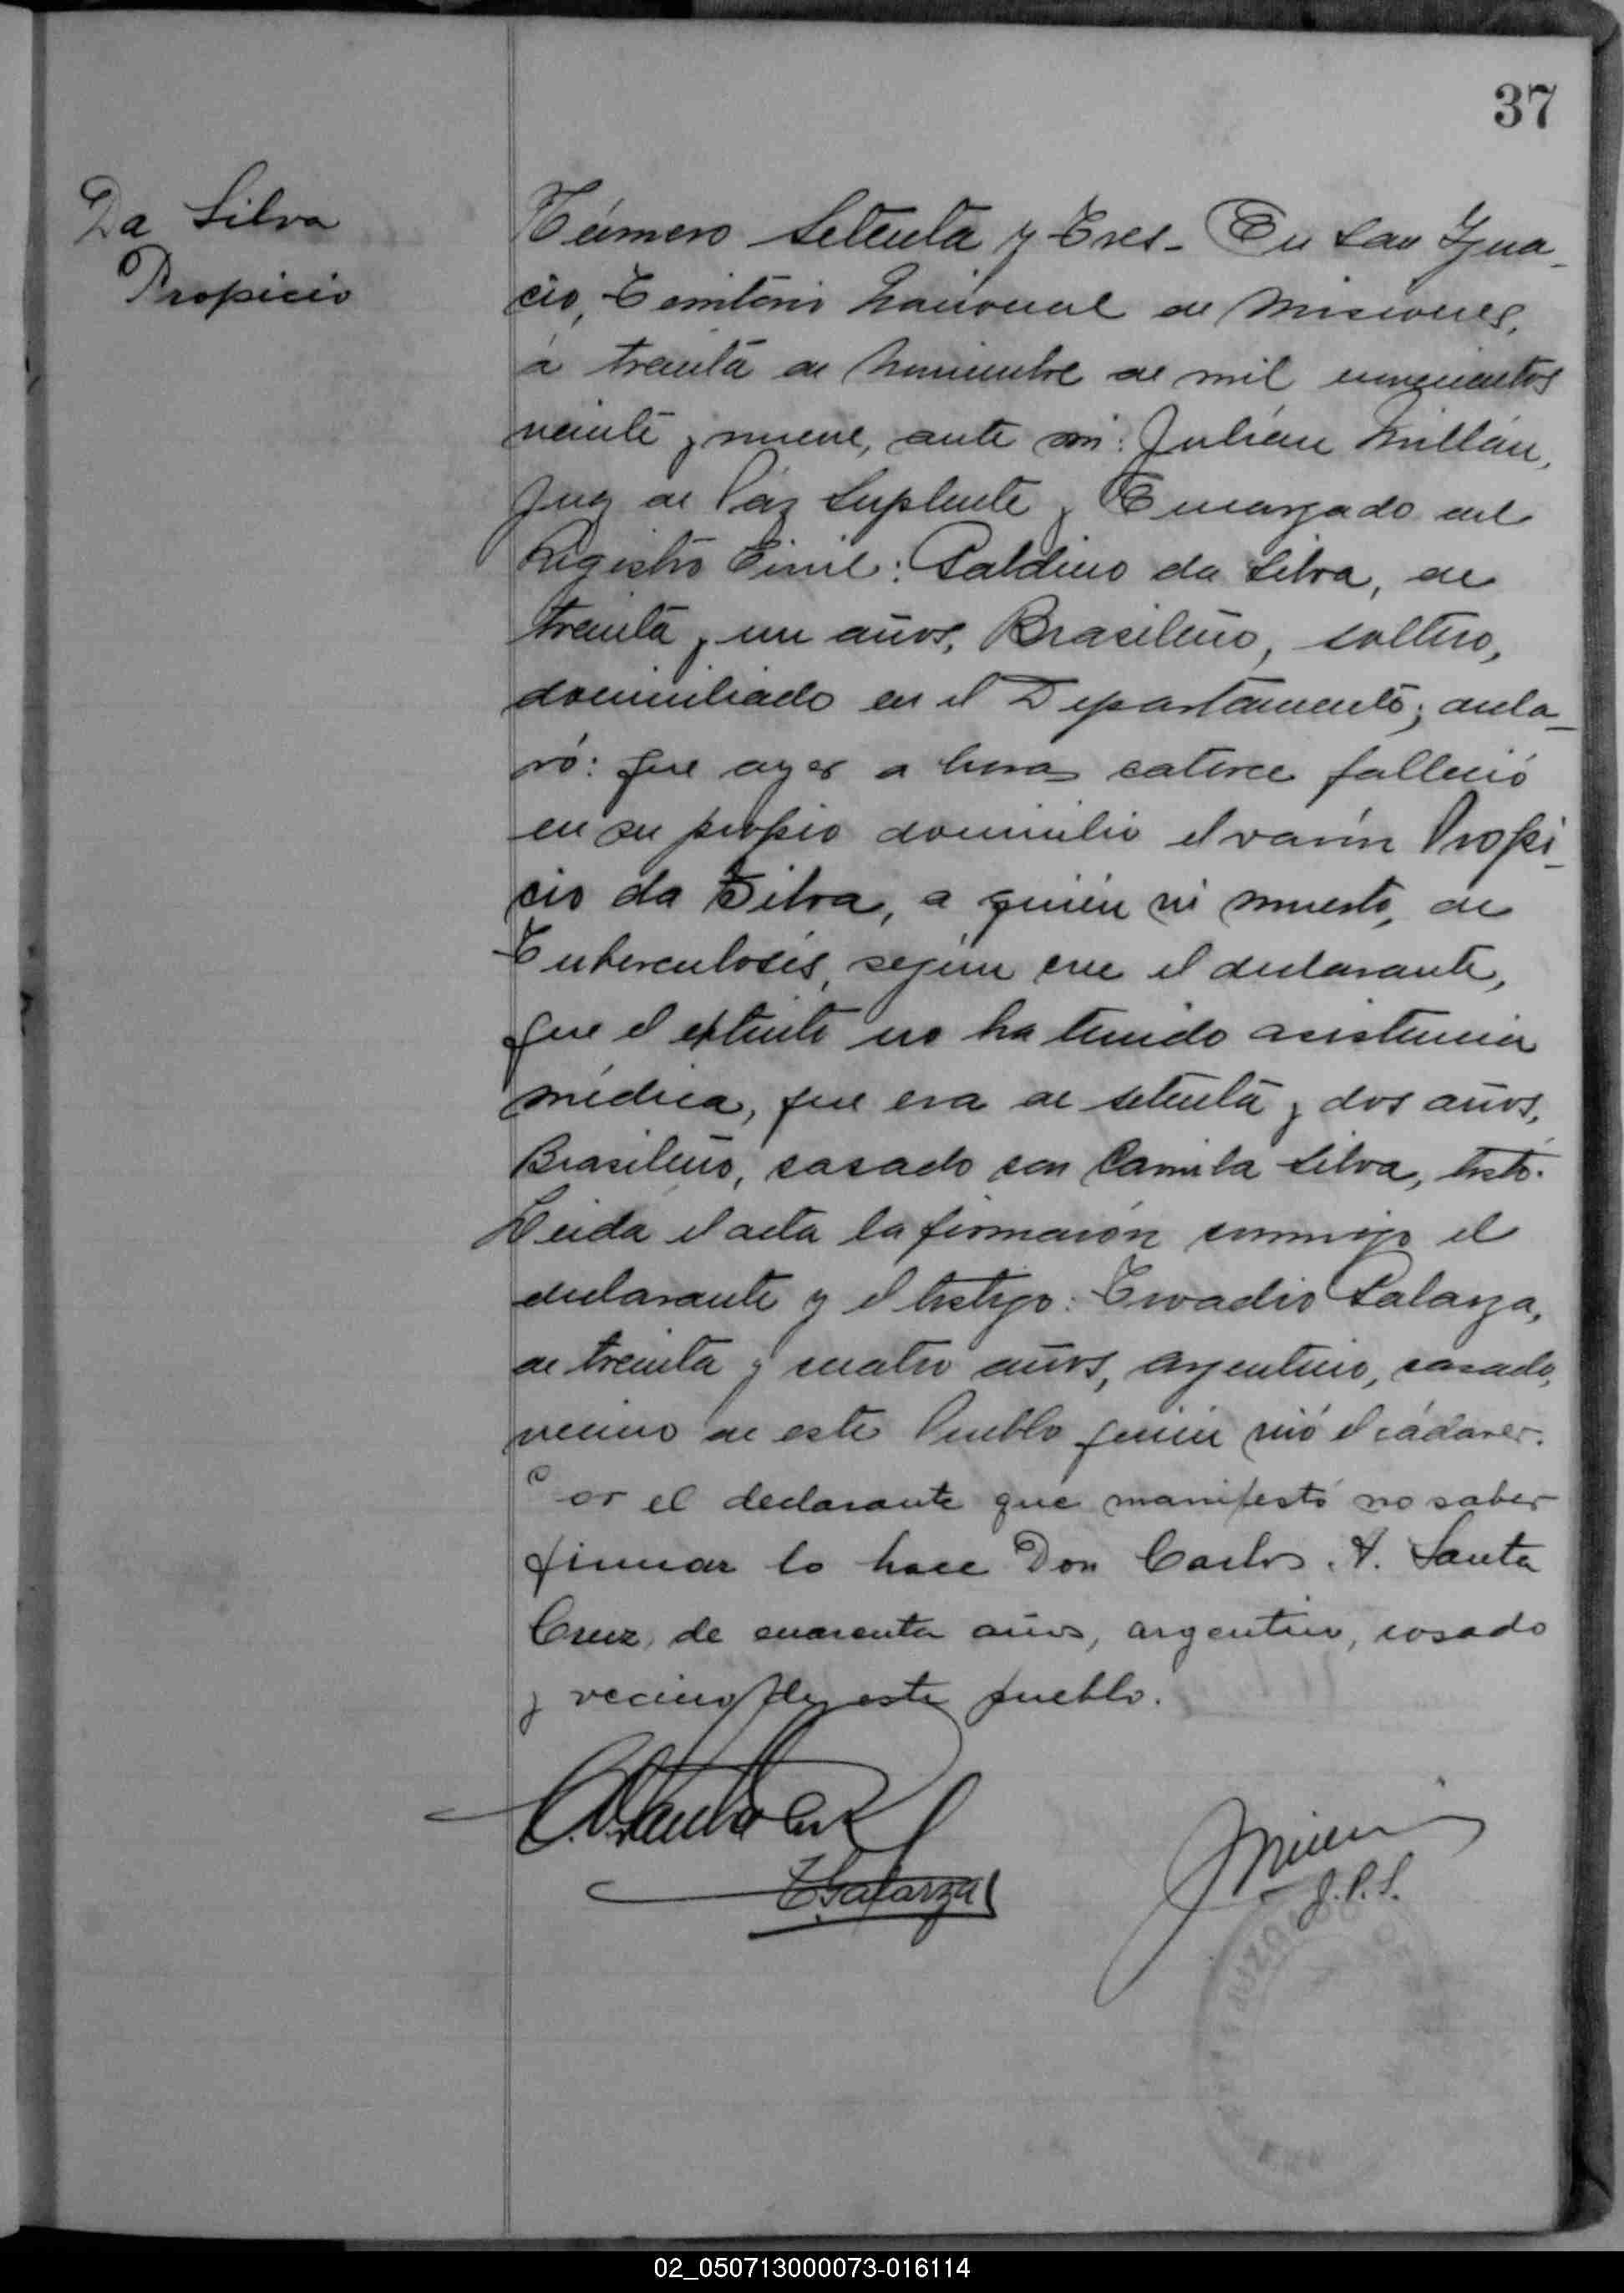 37
Da Silva
Propicio
Número Setenta y Tres- En San Igna-
cio, Territorio Nacional de Misiones,
á treinta de Noviembre de mil novecientos
veinte y nueve, ante mi: Julián Millán,
Juez de Páz Suplente y Encargado del
Registro Civil: Galdino da Silva, de
treinta y un años, Brasileño, soltero,
domiciliado en el Departamento; decla-
ró: Que ayer a horas catorce falleció
en su propio domicilio el varón Propi-
cio da Silva, a quién ví muerto, de
Tuberculosis, según cree el declarante,
que el extinto no ha tenido asistencia
médica, que era de setenta y dos años,
Brasileño, casado con Camila Silva,
Leida el acta la firmarón conmigo el
declarante y el testigo: Galarza,
de treinta y cuatro años, argentino, casado,
vecino de este Pueblo quién vió el cádaver.
Por el declarante que manifestó no saber
firmar lo hace Don Carlos A. Santa
Cruz, de cuarenta años, argentino, casado
y vecino de este pueblo.
C.A. Santa Cruz
T Galarza
J Millán
J.P.S.
JUZGADO
02_050713000073-016114